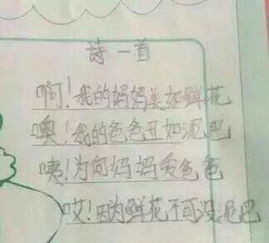 诗一首
啊!我的妈妈美如鲜花
噢!我的爸爸丑如泥巴
咦!为何妈妈爱爸爸
哎!因为鲜花不可没泥巴